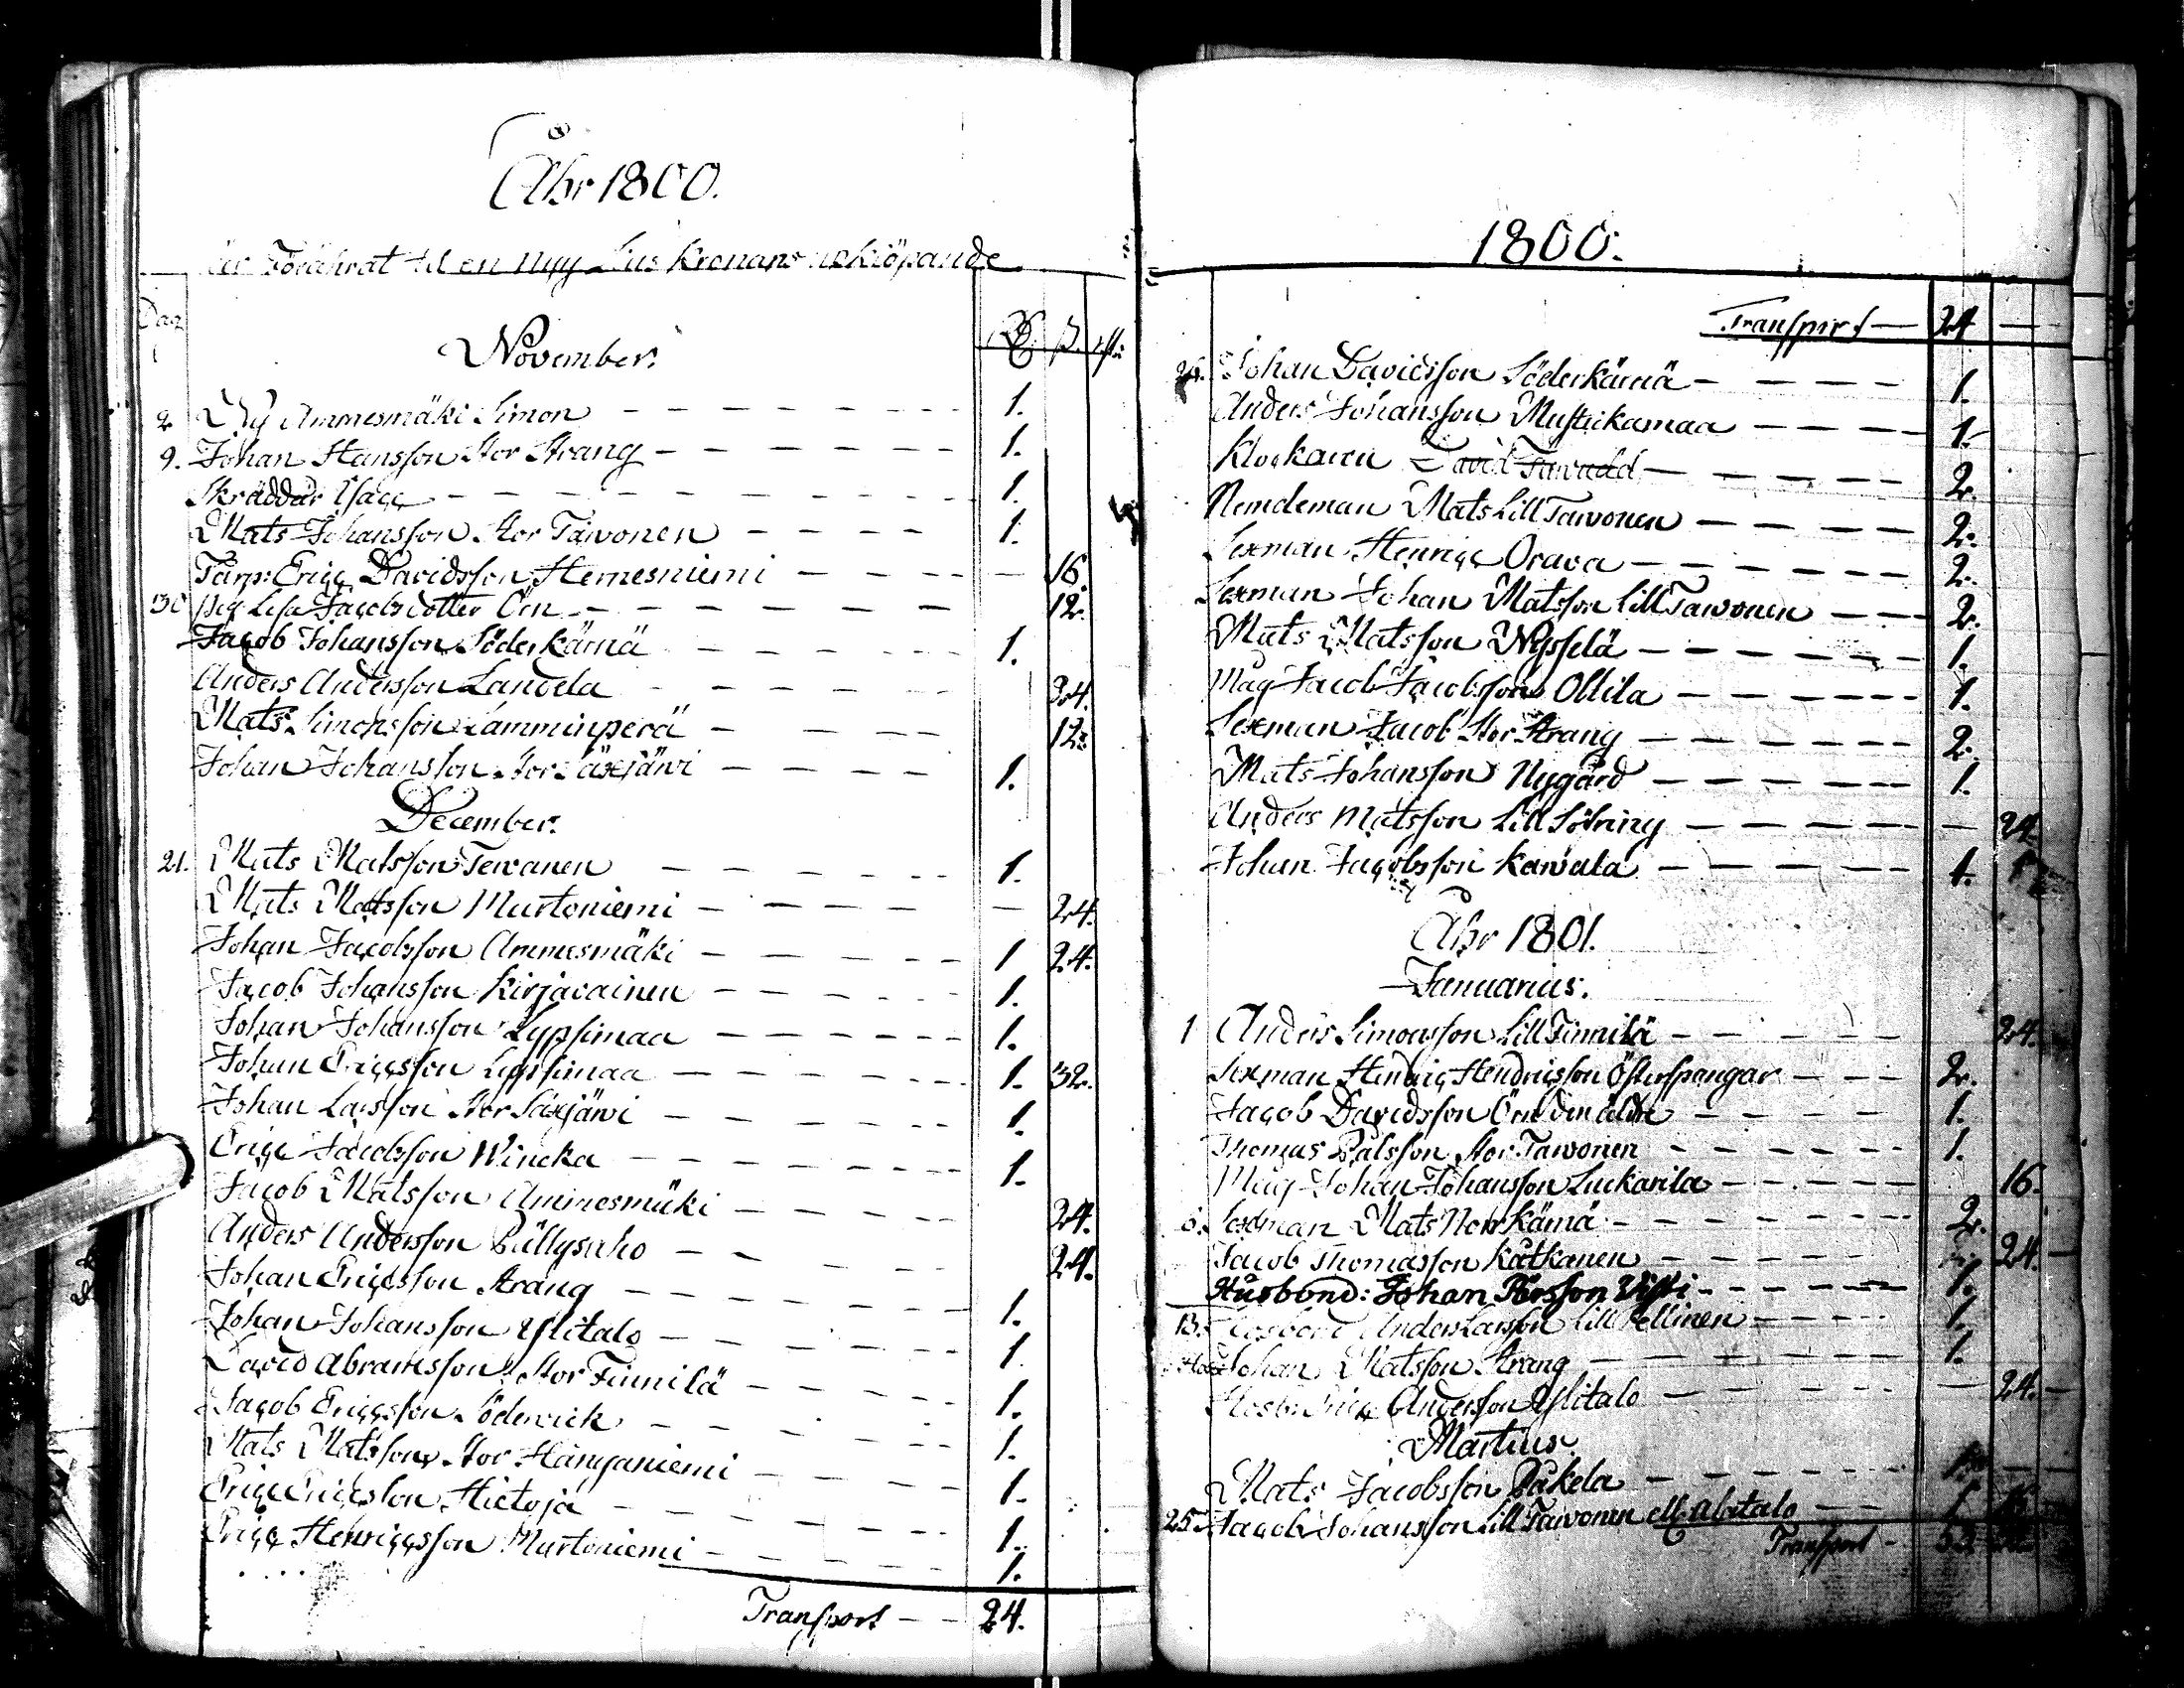 Åhr 1800.
är Förährat til en nyy Lius Kronans upkiöpande
Dag
November. Rd ß.
2 Ny Ammesmäki Simon 1.
9. Johan Hansson Stor Strang 1.
Skräddar Isacc 1.
Mats Johansson Stor Tawonen 1.
Tårp: Ericc Davidsson Hemesniemi 16.
30 Pig Lisa Jacobsdotter Örn 12.
Jacob Johansson Söderkämä 1.
Anders Andersson Landela 24.
Mats Simonsson Lamminperä 12.
Johan Johansson Stor Säxjärwi 1.
December.
21. Mats Matsson Tewanen 1.
Mats Matsson Murtoniemi 24.
Johan Jacobsson Ammesmäki 1 24.
Jacob Johansson Kirjavainen 1.
Johan Johansson Lypsimaa 1.
Johan Ericsson Lypsimaa 1. 32.
Johan Larsson Stor Säxjärwi 1.
Ericc Jacobsson Wincka 1.
Jacob Matsson Ammesmäki 24.
Anders Andersson Pällysaho 24.
Johan Ericsson Strang 1.
Johan Johansson Yslitalo 1
David Abramsson Stor Finnilä 1.
Jacob Ericcsson Söderwick 1.
Mats Matsson Stor Hanganiemi 1.
Ericc Ericsson Hietoja 1.
Ericc Henricsson Murtoniemi 1.
Transport 24.
1800.
Transport 24
26. Johan Davidsson Söderkämä 1.
Anders Johansson Mustikamaa 1.
Klockaren David Tawadd 2.
Nemdeman Mats Lill Tawonen 2.
Sexman Henricc Orava 2.
Sexman Johan Matsson Lill Tawonen 2.
Mats Matsson Nysselä 1.
Måg Jacob Jacobsson Ollila 1.
Sexman Jacob Stor Strang 2.
Mats Johansson Nygård 1.
Anders Matsson Lill Sölring 24.
Johan Jacobsson Kawala 1.
Åhr 1801.
Januarius.
1 Anders Simonsson Lill Finnilä 24.
Sexman Hendric Hendricsson Österspangar 2.
Jacob Davidsson Örn den äldre 1.
Thomas Pålsson Stor Tawonen 1.
Måg Johan Johansson Luckarila 16.
6. Sexman Mats Norr Kämä 2.
Jacob Thomasson Kåtkanen 24.
Husbond: Johan Persson Visti 1.
13. Husbond Anders Larsson Lill Pellinen 1.
Johan Matsson Strang 1.
Ericc Andersson Yslitalo 24.
Martius.
Mats Jacobsson Pakela
25. Jacob Johansson Lill Tawonen ell Alatalo 1.
Transport 53